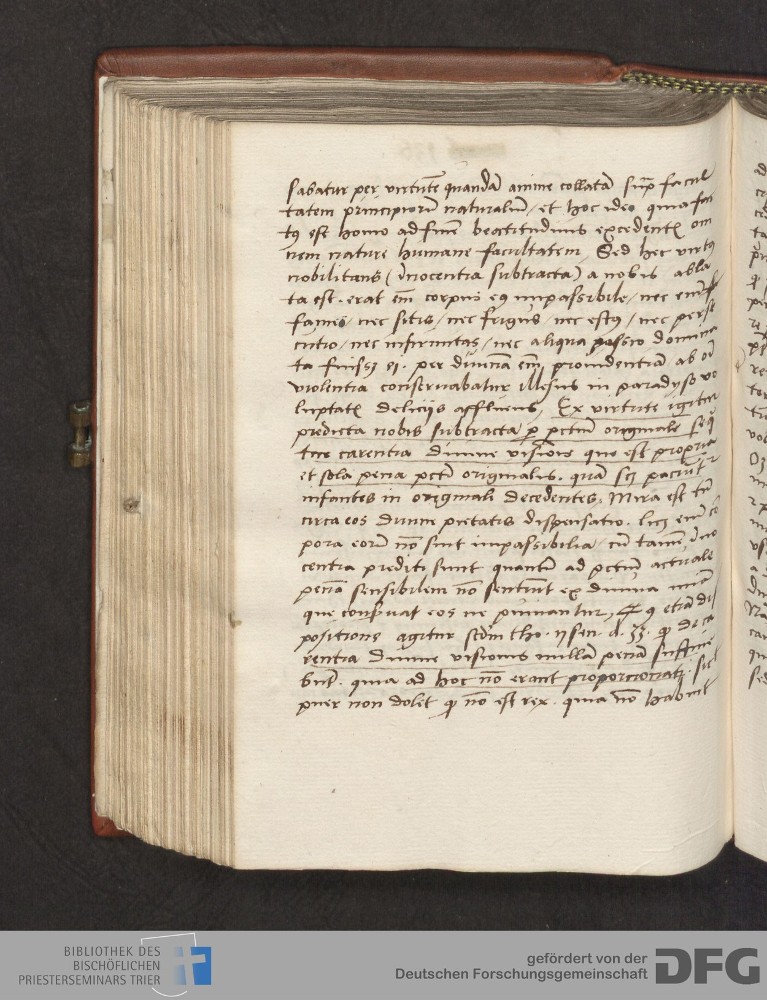 sabatur per virtutē quandā anime collatā sup̄ facul
tatem principiorū naturaliū / et hoc ideo quia fac
tꝰ est homo ad finē beatitudinis excedentē om
nem nature humane facultatem, Sed hec virtꝰ
nobilitans (Innocentia subtracta) a nobis abla
ta est. erat em̄ corpus eiꝰ impassibile / nec enī
fames / nec sitis / nec frigus / nec estꝰ / nec perse
cutio / nec infirmitas / nec aliqua passio domina
ta fuissꝫ ei. per diuinā em̄ prouidentiā ab oī
violentia conseruabatur illesus in paradyso vo
luptatꝭ deliciis affluens, Ex virtute igitur
predicta nobis subtracta ꝑ pctm̄ originale seq̄
tur carentia diuine visionis que est propria
et sola pena pcti originalis. quā scꝫ paciūtur
infantes in originali decedentes. Mira est tn̄
circa eos diuine pietatis dispensatio. licꝫ enī cor
pora eorū nō sint impassibilia / cū tamen Inno
centia prediti sunt quantū ad pctm̄ actuale
penā sensibilem nō sentiunt ex diuina
que conseruat eos ne puniantur, etiā di
positione agitur scdm tho. ij sen. d. 33. ꝙ de ca
rentia diuine visionis nullā penā sustine
bunt. quia ad hoc nō erant proporcionati. sicut
puer non dolet ꝙ nō est rex. quia nō habuit
BIBLIOTHEK DES
BISCHÖFLICHEN
PRIESTERSEMINARS TRIER
gefördert von der
Deutschen Forschungsgemeinschaft
DFG